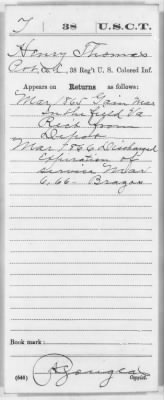 T 38 U.S.C.T.
Henry Thomas
Co. , 38 Reg't U. S. Colored Inf.
Appears on Returns as follows:
Mar 1865 Gain Mar
In the field Va
Rect from
Depot
Mar 1866 Discharged
Expiration of
service Mar
6, 66 - Brazos
Book mark:
(646) Copyist.